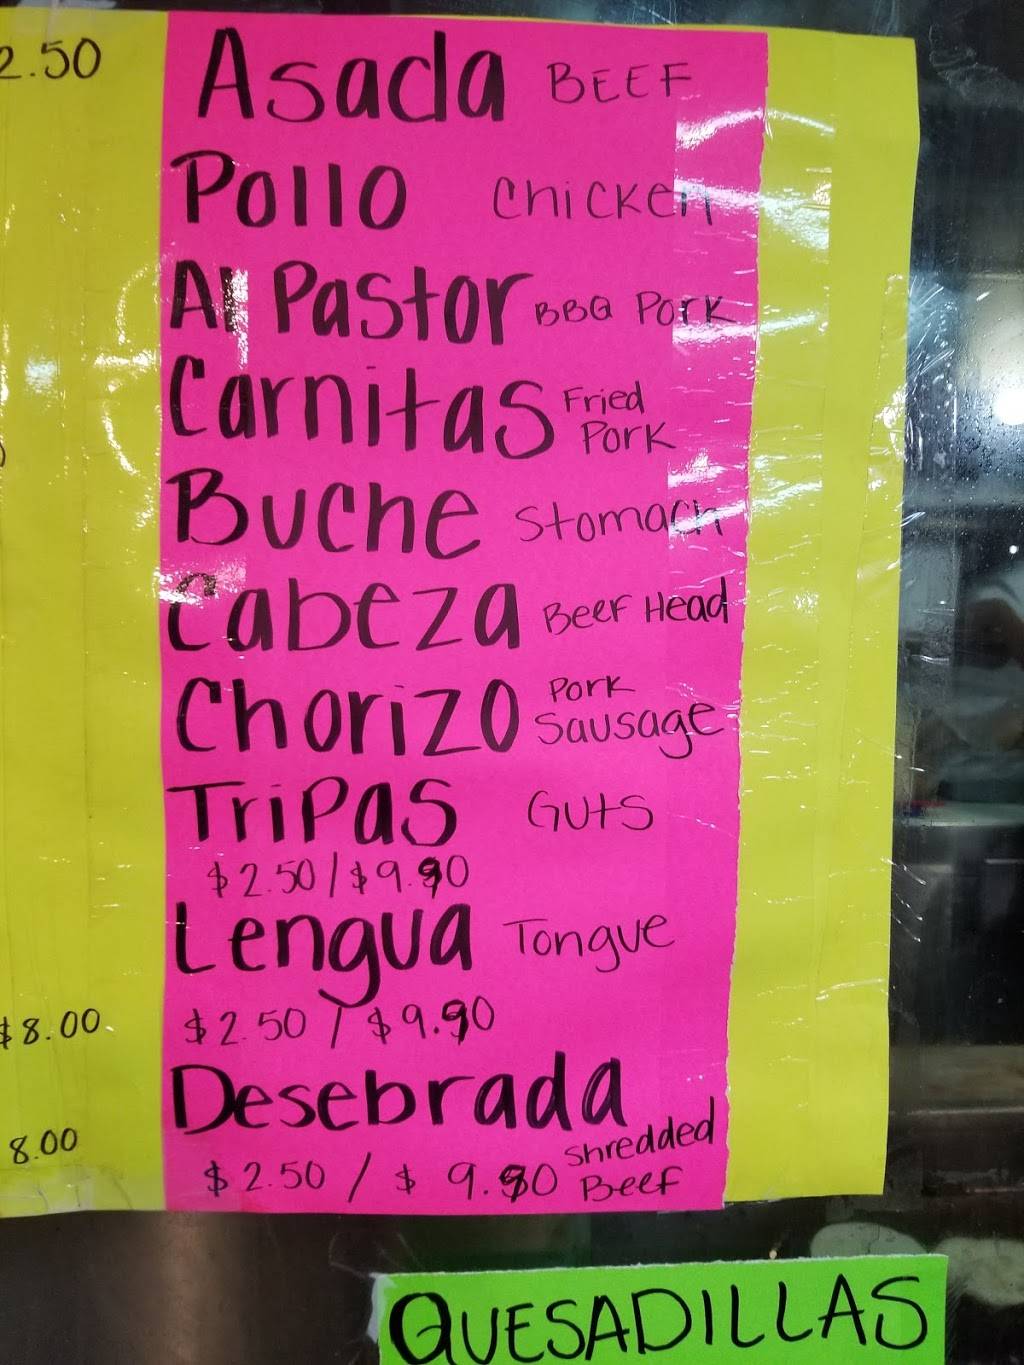 2.50
Asada BEEF
Pollo Chicken
Al Pastor BBQ Pork
Carnitas Fried Pork
Buche Stomach
Cabeza Beef Head
Chorizo Pork Sausage
Tripas Guts
$2.50/$9.90
Lengua Tongue
$8.00 $2.50 / $9.90
Desebrada Shredded Beef
8.00 $2.50 / $ 9.90
QUESADILLAS